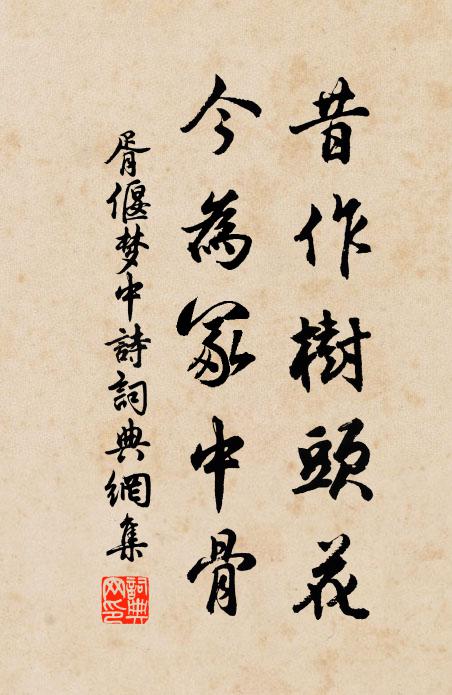 昔作樹頭花
今為冢中骨
胥偃梦中詩詞典網集
詞典網印